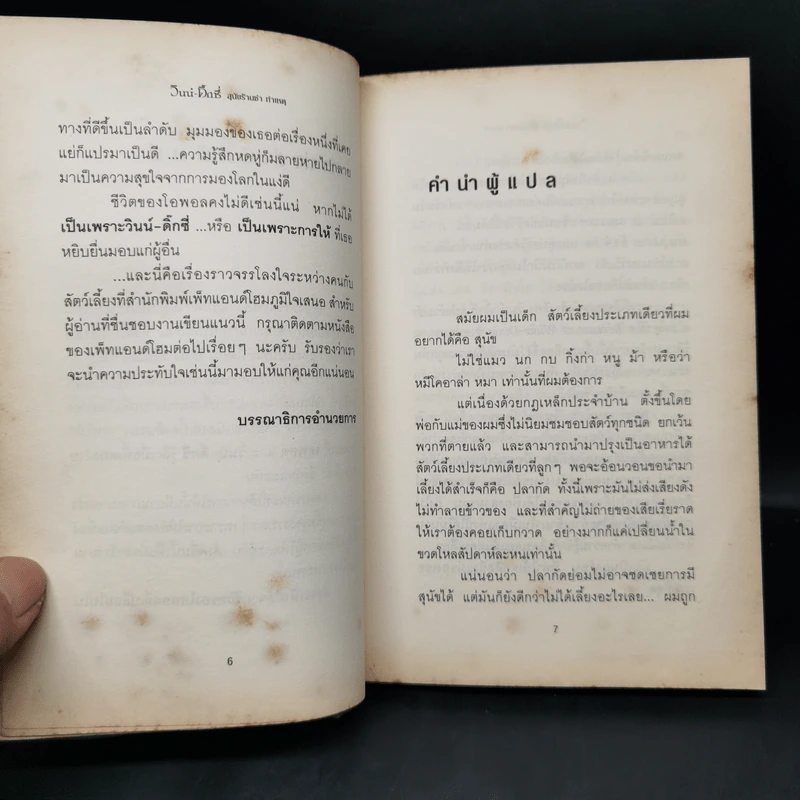 วินน์-ดิ๊กซี่ สุนัขร้านชำ
ทางที่ดีขึ้นเป็นลำดับ มุมมองของเธอต่อเรื่องหนึ่งที่เคย
แย่ก็แปรมาเป็นดี ...ความรู้สึกหดหู่ก็มลายหายไปกลาย
มาเป็นความสุขใจจากการมองโลกในแง่ดี
ชีวิตของโอพอลคงไม่ดีเช่นนี้แน่ หากไม่ได้
เป็นเพราะวินน์-ดิ๊กซี่ ...หรือ เป็นเพราะการให้ ที่เธอ
หยิบยื่นมอบแก่ผู้อื่น
...และนี่คือเรื่องราวจรรโลงใจระหว่างคนกับ
สัตว์เลี้ยงที่สำนักพิมพ์เพ็ทแอนด์โฮมภูมิใจเสนอ สำหรับ
ผู้อ่านที่ชื่นชอบงานเขียนแนวนี้ กรุณาติดตามหนังสือ
ของเพ็ทแอนด์โฮมต่อไปเรื่อยๆ นะครับ รับรองว่าเรา
จะนำความประทับใจเช่นนี้มามอบให้แก่คุณอีกแน่นอน
บรรณาธิการอำนวยการ
6
คำนำผู้แปล
สมัยผมเป็นเด็ก สัตว์เลี้ยงประเภทเดียวที่ผม
อยากได้คือ สุนัข
ไม่ใช่แมว นก กบ กิ้งก่า หนู ม้า หรือว่า
หมีโคอาล่า หมา เท่านั้นที่ผมต้องการ
แต่เนื่องด้วยกฎเหล็กประจำบ้าน ตั้งขึ้นโดย
พ่อกับแม่ของผมซึ่งไม่นิยมชมชอบสัตว์ทุกชนิด ยกเว้น
พวกที่ตายแล้ว และสามารถนำมาปรุงเป็นอาหารได้
สัตว์เลี้ยงประเภทเดียวที่ลูกๆ พอจะอ้อนวอนขอนำมา
เลี้ยงได้สำเร็จก็คือ ปลากัด ทั้งนี้เพราะมันไม่ส่งเสียงดัง
ไม่ทำลายข้าวของ และที่สำคัญไม่ถ่ายของเสียเรี่ยราด
ให้เราต้องคอยเก็บกวาด อย่างมากก็แค่เปลี่ยนน้ำใน
ขวดโหลสัปดาห์ละหนเท่านั้น
แน่นอนว่า ปลากัดย่อมไม่อาจชดเชยการมี
สุนัขได้ แต่มันก็ยังดีกว่าไม่ได้เลี้ยงอะไรเลย... ผมถูก
7